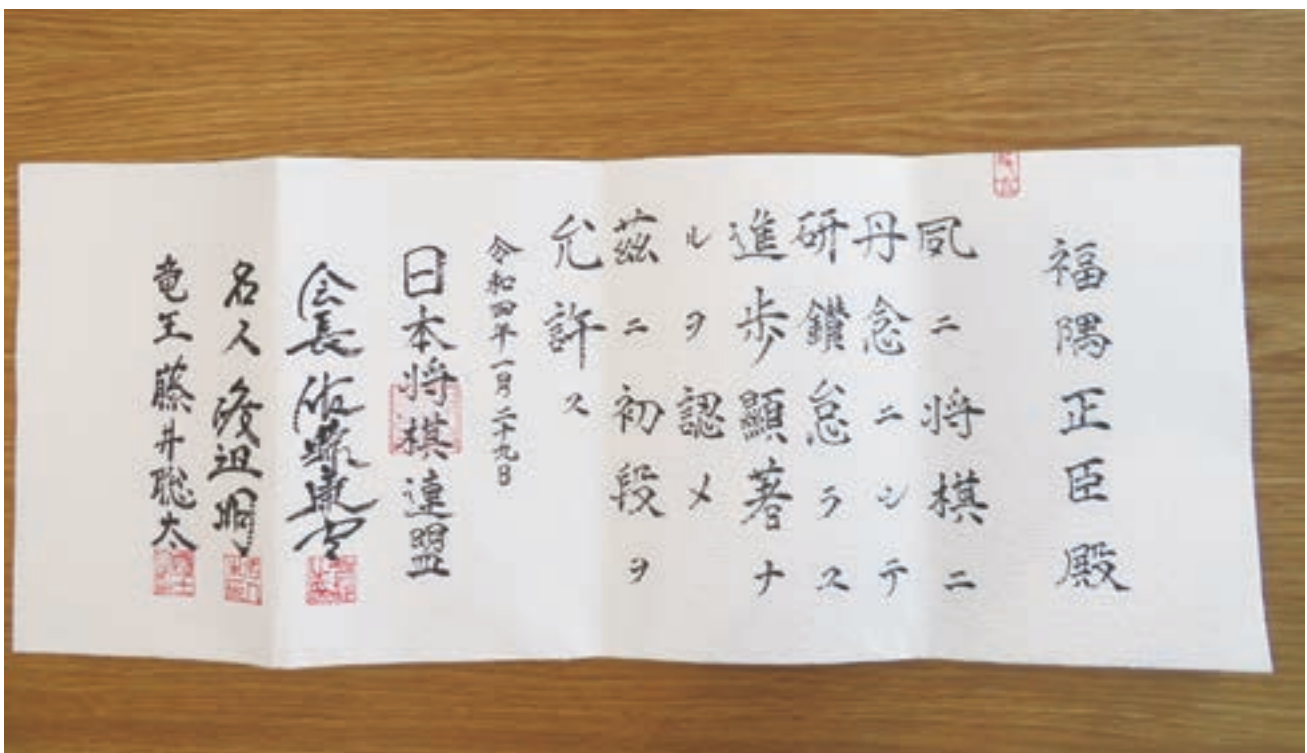 福隅正臣殿
夙ニ将棋ニ
丹念ニシテ
研鑽怠ラス
進歩顯著ナ
ルヲ認メ
茲ニ初段ヲ
允許ス
令和四年一月二十九日
日本将棋連盟
会長 佐藤康光
名人 渡辺明
竜王 藤井聡太